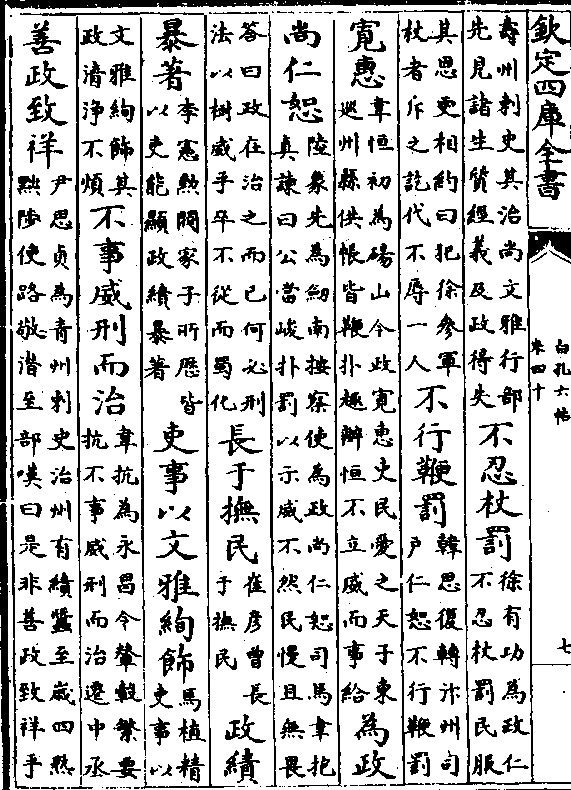 欽定四庫全書
白孔六帖
卷四十
七
壽州刺史其治尚文雅行部
先見諸生質經義及政得失
不忍杖罰
徐有功為政仁
不忍杖罰民服
其恩更相約曰犯徐參軍
杖者斥之訖代不辱一人
不行鞭罰
韓思復轉汴州司
户仁恕不行鞭罰
寛惠
韋恒初為碭山令政寛惠吏民愛之天子東
巡州縣供帳皆鞭扑趣辦恒不立威而事給
為政
尚仁恕
陸象先為劒南按察使為政尚仁恕司馬韋抱
真諫曰公當峻扑罰以示威不然民慢且無畏
答曰政在治之而已何必刑
法以樹威乎卒不從而蜀化
長于撫民
崔彦曽長
于撫民
政績
暴著
李憲勲閥家子所歴皆
以吏能顯政績暴著
吏事以文雅絢飾
馬植精
吏事以
文雅絢飾其
政清浄不煩
不事威刑而治
韋抗為永昌令輦轂繁要
抗不事威刑而治遷中丞
善政致祥
尹思貞為青州刺史治州有績蠶至嵗四熟
黜陟使路敬潜至部嘆曰是非善政致祥乎